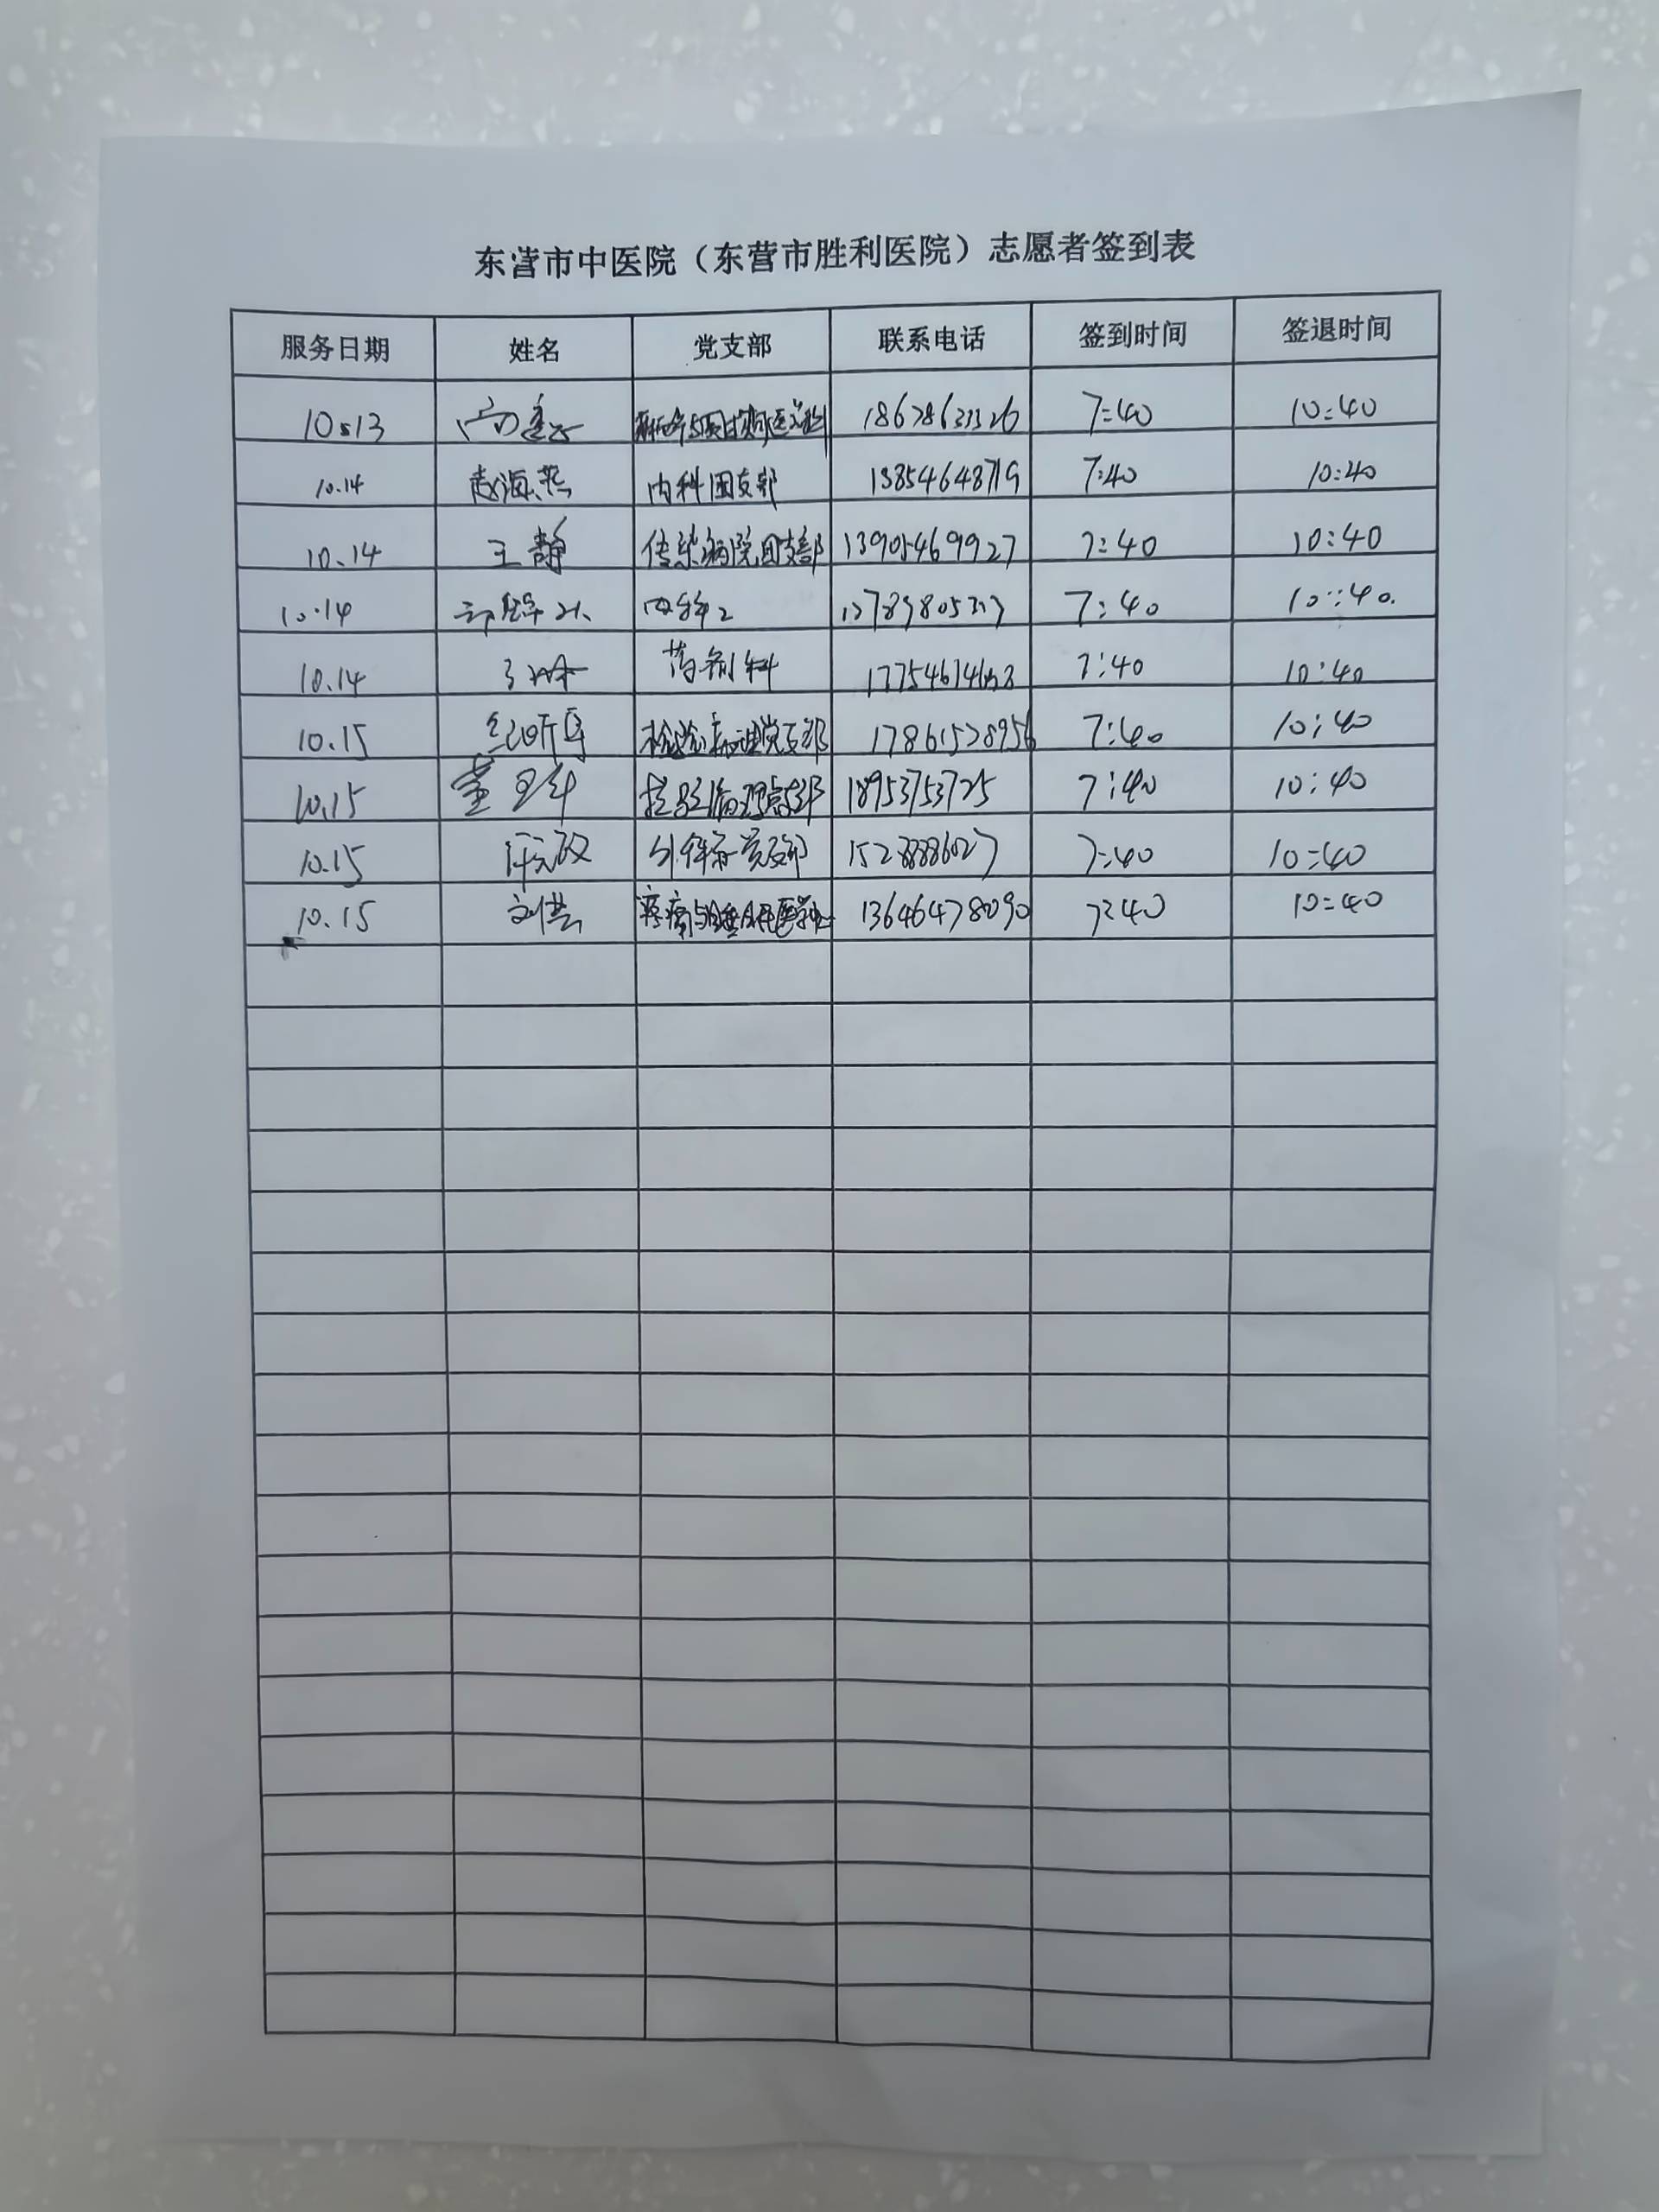 东营市中医院（东营市胜利医院）志愿者签到表
服务日期 姓名 党支部 联系电话 签到时间 签退时间
10.13 7:40 10:40
10.14 赵海燕 内科团支部 13854648719 7:40 10:40
10.14 王静 传染病院团支部 13905469927 7:40 10:40
10.14 内科2 7:40 10:40.
10.14 药剂科 7:40 10:40
10.15 纪昕彤 检验病理党支部 17861528956 7:40 10:40
10.15 董 检验病理党支部 18953753725 7:40 10:40
10.15 外 党支部 7:40 10:40
10.15 刘芸 疼痛与睡眠医学中心 13646478090 7:40 10:40